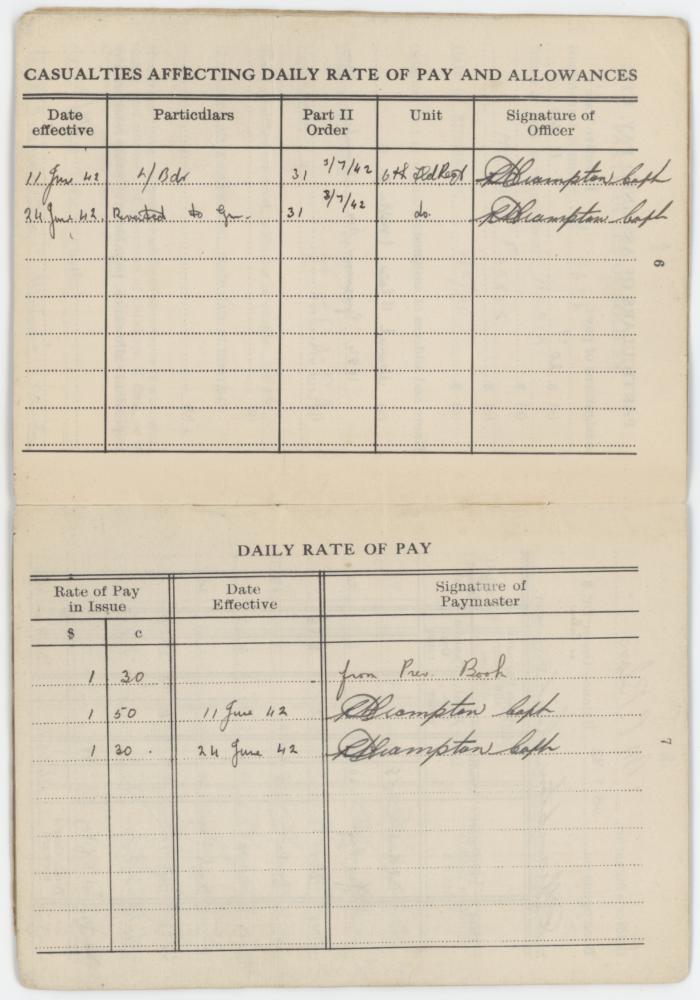 CASUALTIES AFFECTING DAILY RATE OF PAY AND ALLOWANCES
Date effective Particulars Part II Order Unit Signature of Officer
11 June 42 L/Bdr 31 3/7/42 6th Fld Regt Crampton Capt
24 June 42. Reverted to Gnr. 31 3/7/42 do. Crampton Capt
6
DAILY RATE OF PAY
Rate of Pay in Issue Date Effective Signature of Paymaster
$ c
1 30 from Prev. Book
1 50 11 June 42 Crampton Capt
1 30. 24 June 42 Crampton Capt
7